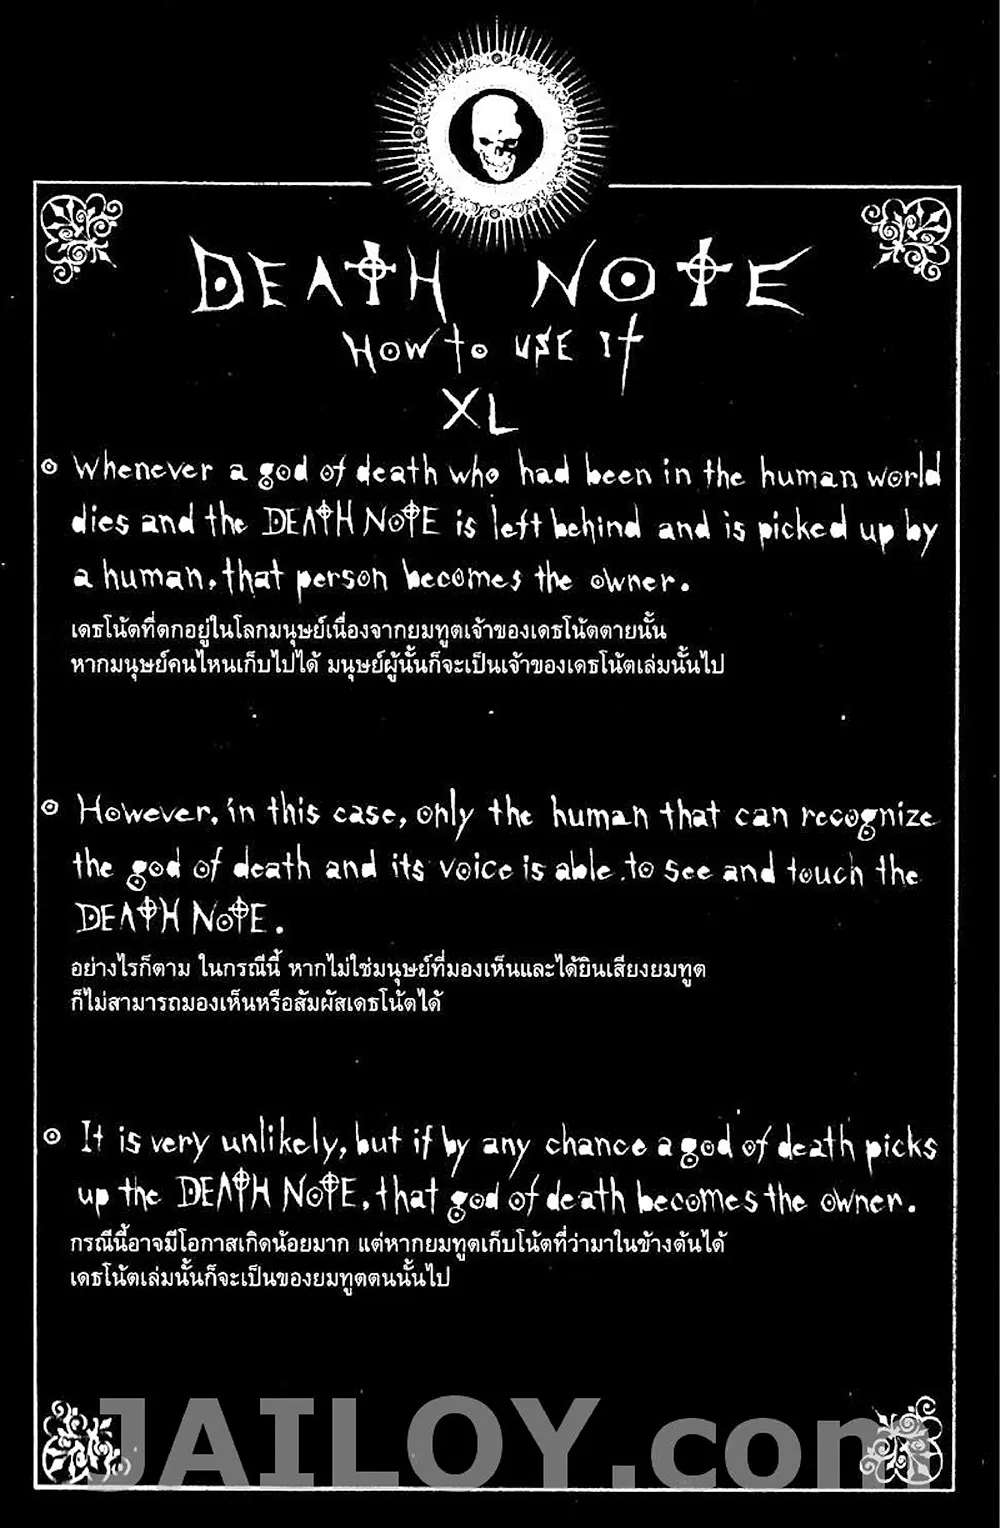 DEATH NOTE
HOW to USE It
XL
Whenever a god of death who had been in the human world
dies and the DEATH NOTE is left behind and is picked up by
a human, that person becomes the owner.
เดธโน้ตที่ตกอยู่ในโลกมนุษย์เนื่องจากยมทูตเจ้าของเดธโน้ตตายนั้น
หากมนุษย์คนไหนเก็บไปได้ มนุษย์ผู้นั้นก็จะเป็นเจ้าของเดธโน้ตเล่มนั้นไป
However, in this case, only the human that can recognize
the god of death and its voice is able to see and touch the
DEATH NOTE.
อย่างไรก็ตาม ในกรณีนี้ หากไม่ใช่มนุษย์ที่มองเห็นและได้ยินเสียงยมทูต
ก็ไม่สามารถมองเห็นหรือสัมผัสเดธโน้ตได้
It is very unlikely, but if by any chance a god of death picks
up the DEATH NOTE, that god of death becomes the owner.
กรณีนี้อาจมีโอกาสเกิดน้อยมาก แต่หากยมทูตเก็บโน้ตที่ว่ามาในข้างต้นได้
เดธโน้ตเล่มนั้นก็จะเป็นของยมทูตตนนั้นไป
JAILOY.com